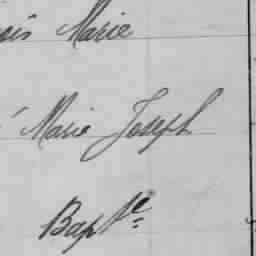 ois Marie
Marie Joseph
Bapte